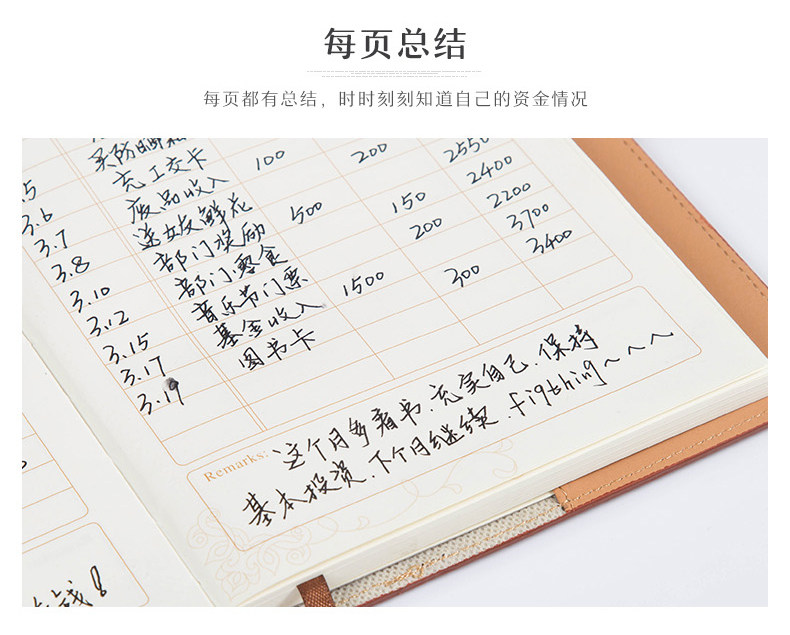 每页总结
每页都有总结，时时刻刻知道自己的资金情况
5 买防晒
3.6 充工交卡
3.7 废品收入 100
3.8 送女友鲜花 200
3.10 部门奖励 500 2550
3.12 部门零食 150 2400
3.15 音乐节门票 200 2200
3.17 基金收入 1500 3700
3.19 图书卡 300 3400
Remarks: 这个月多看书、充实自己、保持
基本投资、下个月继续、figthing~~~
钱！